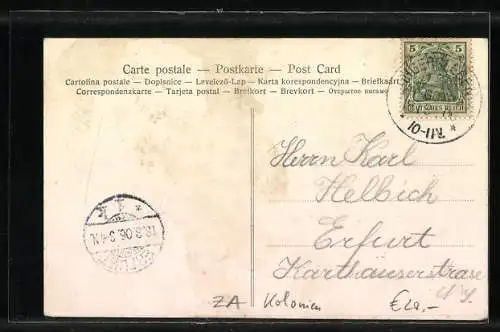 Carte postale — Postkarte — Post Card
Cartolina postale — Dopisnice — Levelező-Lap — Karta korespondencyjna — Briefkaart
Correspondenzkarte — Tarjeta postal — Brefkort — Brevkort — Открытое письмо
5 5
DEUTSCHES REICH
10-11V.
Herrn Karl
Helbich
Erfurt
Karthäuserstrase
18.8.06. 3-4N.
ZA Kolonien €20,-